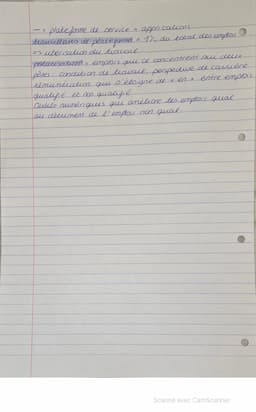 → plateforme de service = application
travailleurs de plateforme = 1% du total des emplois
=> ubérisation du travail
polarisation = emplois qui se concentrent sur deux
pôles : condition de travail, perspective de carrière,
rémunération qui s'éloigne de + en + entre emplois
qualifié et non qualifié
Outils numériques qui améliore les emplois qual
au détriment de l'emploi non qual
Scanné avec CamScanner